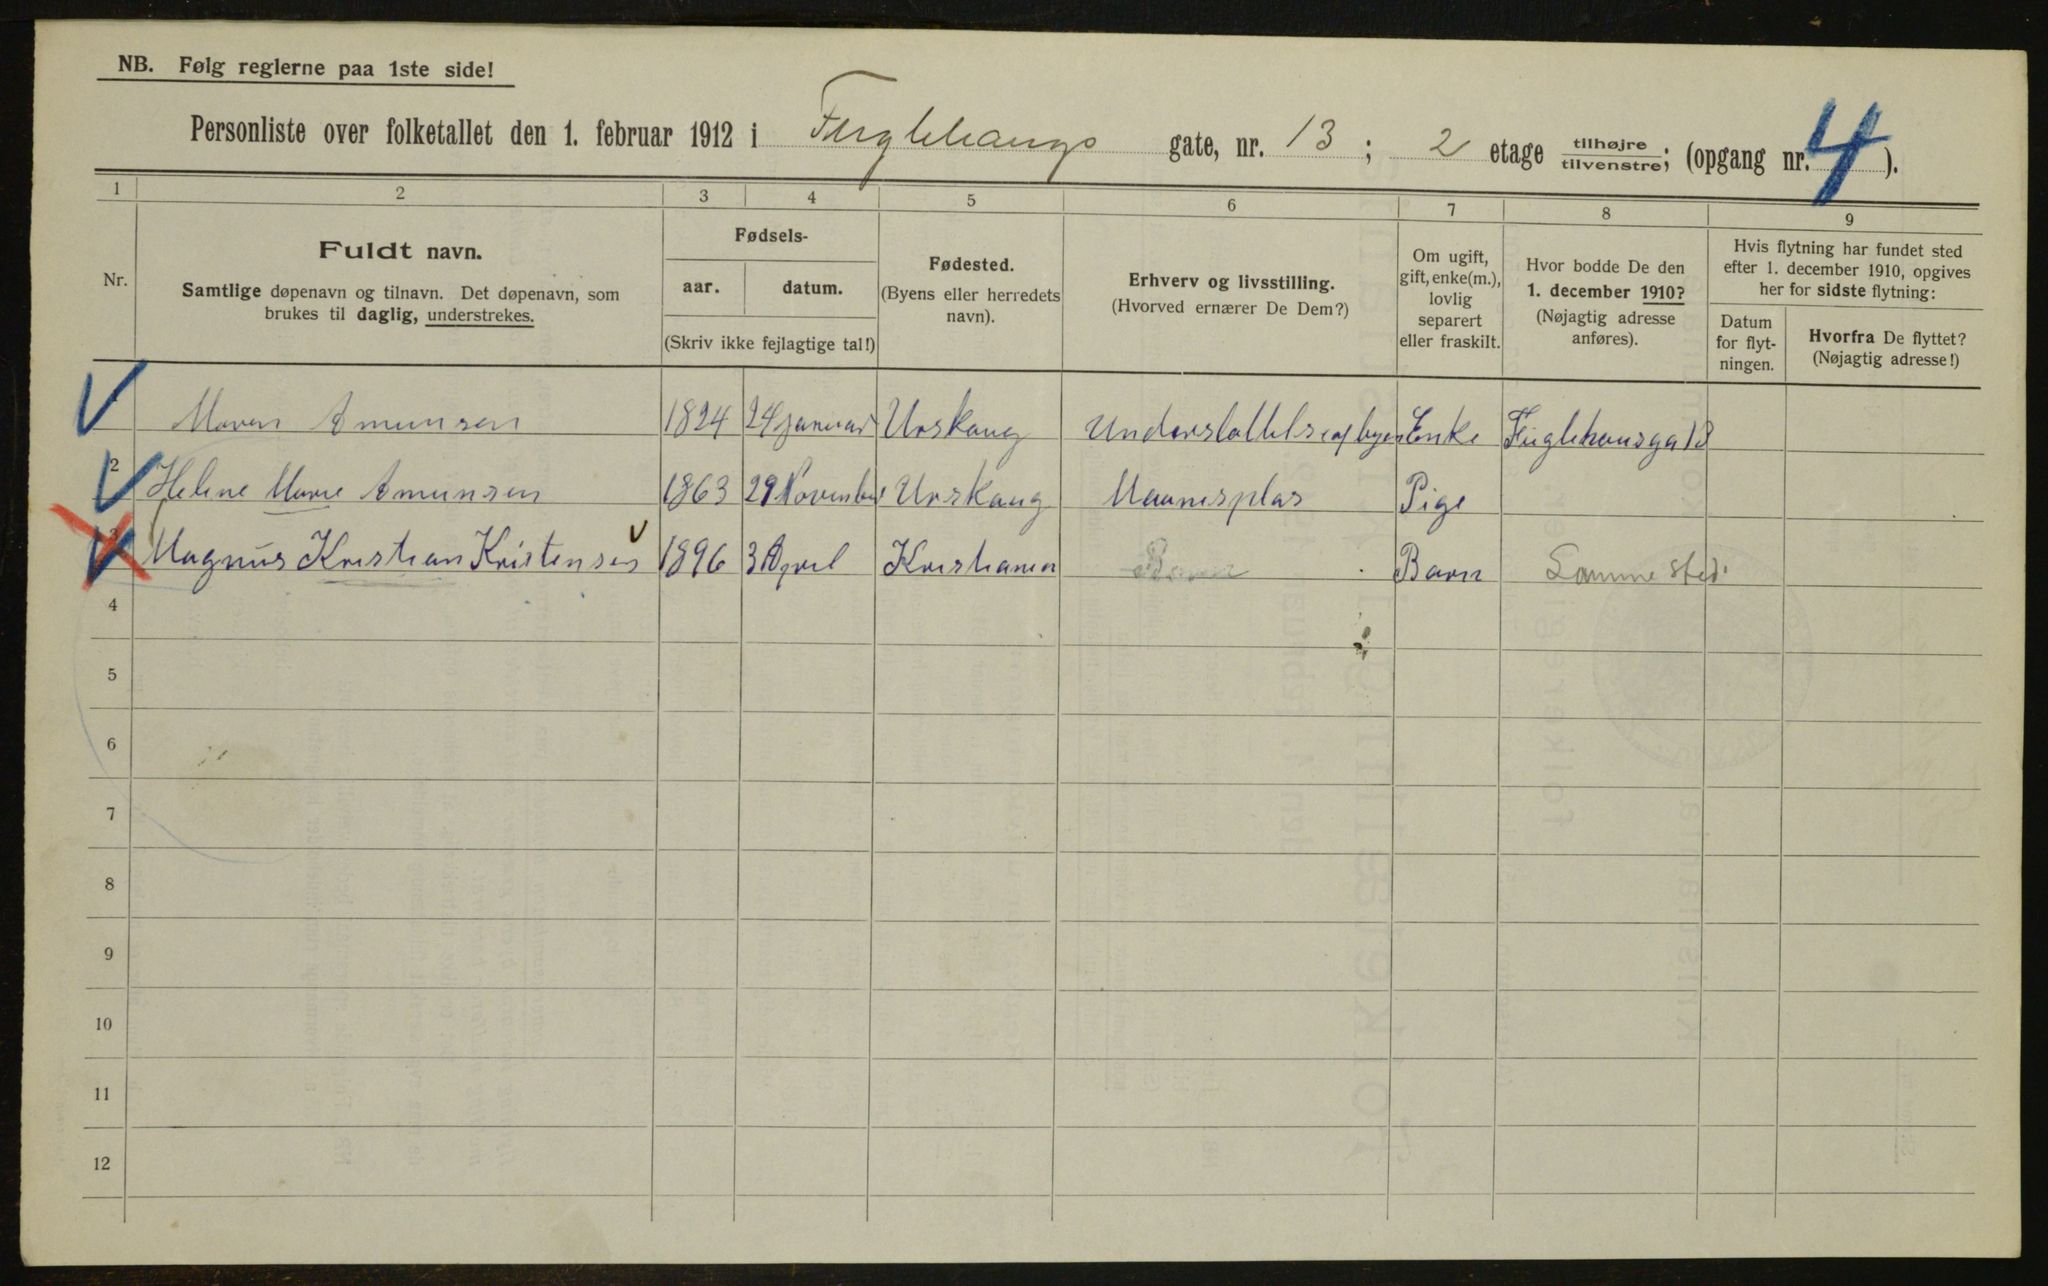 NB. Følg reglerne paa 1ste side!
Personliste over folketallet den 1. februar 1912 i Fuglehaugs gate, nr. 13 ; 2 etage tilhøjre tilvenstre; (opgang nr. 4 ).
1 2 3 4 5 6 7 8 9
Nr.
Fuldt navn.
Samtlige døpenavn og tilnavn. Det døpenavn, som
brukes til daglig, understrekes.
Fødsels-
aar. datum.
(Skriv ikke fejlagtige tal!)
Fødested.
(Byens eller herredets
navn).
Erhverv og livsstilling.
(Hvorved ernærer De Dem?)
Om ugift,
gift, enke(m.),
lovlig
separert
eller fraskilt.
Hvor bodde De den
1. december 1910?
(Nøjagtig adresse
anføres).
Hvis flytning har fundet sted
efter 1. december 1910, opgives
her for sidste flytning:
Datum
for flyt-
ningen.
Hvorfra De flyttet?
(Nøjagtig adresse!)
Maren Amunsen 1824 24 januar Urskaug Understøttelse af byen Enke Fuglehausga 13
2 Helene Marie Amunsen 1863 29 November Urskaug Pige
3 Magnus Kristian Kristensen 1896 3 April Kristiania Barn Barn Samme sted.
4
5
6
7
8
9
10
11
12